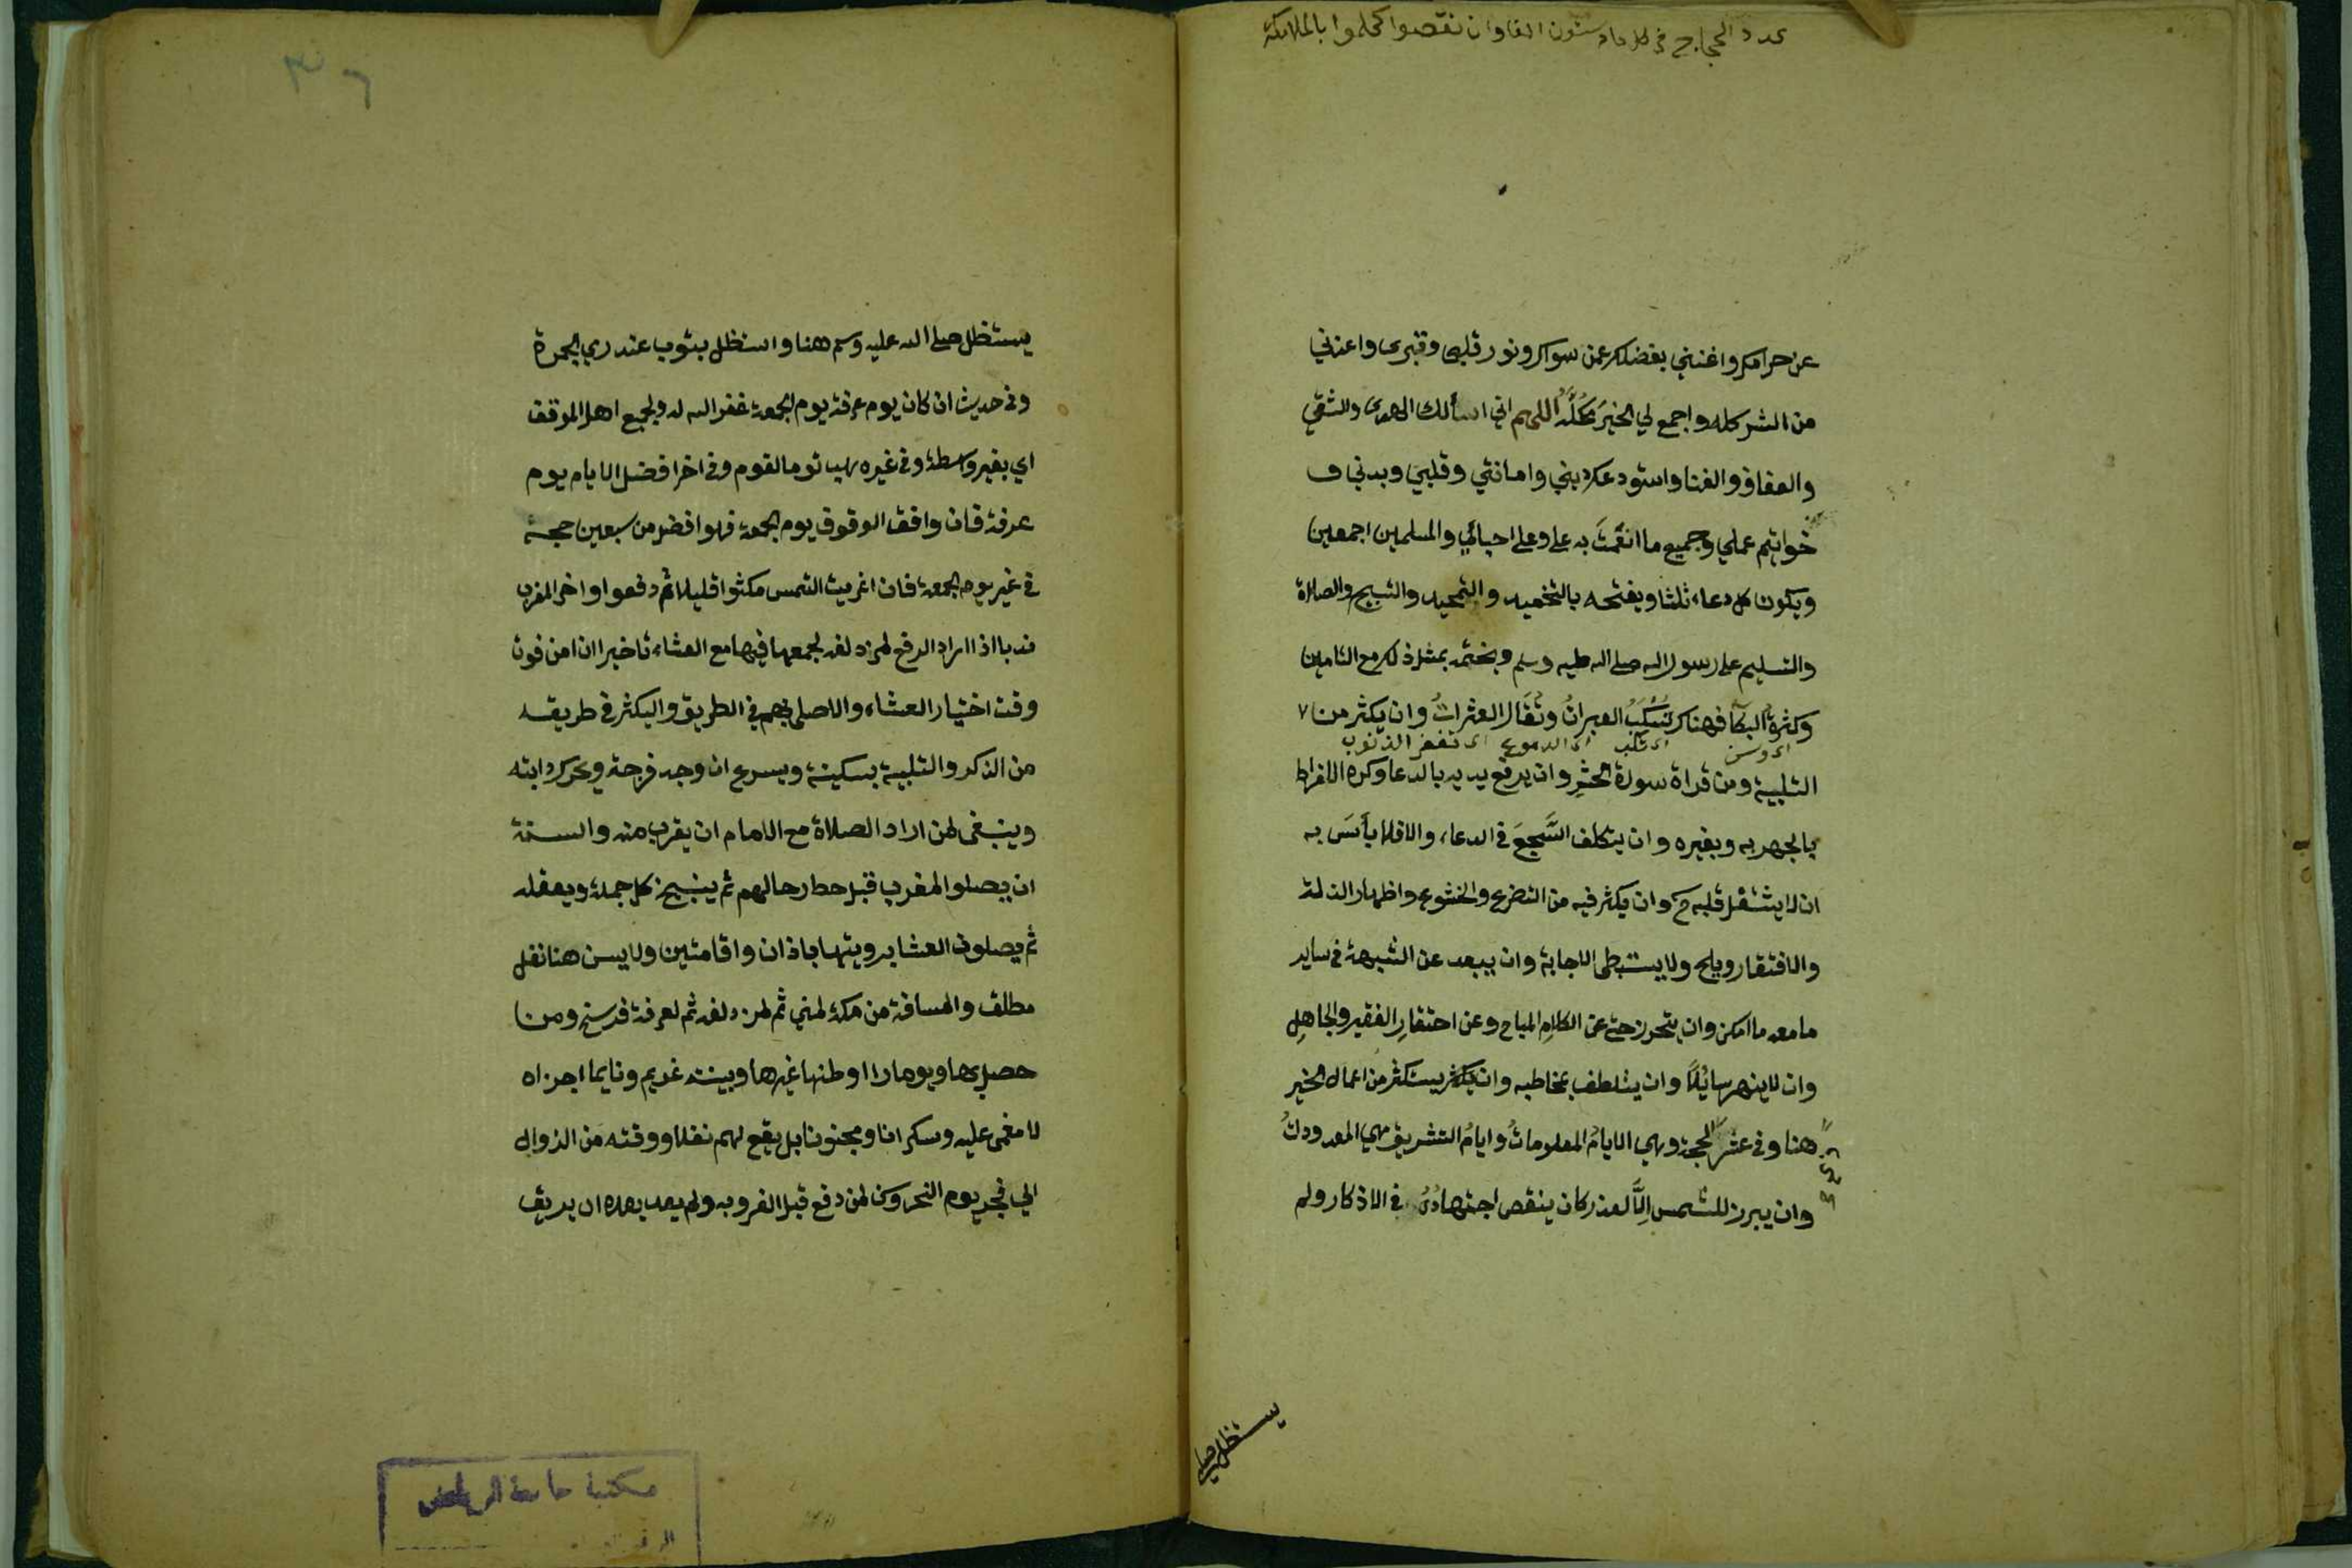 عدد الحجاج في كل عام ستون الفا وان نقصوا كملوا بالملائكة
عن حرامك واغنني بفضلك عمن سواك ونور قلبي وقبري واعذني
من الشر كله واجمع لي الخيرَ كُلَّهُ اللهم اني اسألك الهدى والتقي
والعفاف والغنا واستودعك ديني وامانتي وقلبي وبدني و
خواتيم عملي وجميع ما انعمتَ به علي وعلى احبائي والمسلمين اجمعين
ويكون كل دعاء ثلثا ويفتحه بالتحميد والتمجيد والتسبيح والصلاة
والتسليم على رسول الله صلى الله عليه وسلم ويختمه بمثل ذلك مع التامين
وكثرةُ البكا فهناك تُسْكَبُ العبراتُ وتُقَال العثراتُ وان يكثر من
اي وسن اي تكب اي الدموع اي تغفر الذنوب
التلبية ومن قراة سورة الحشرِ وان يرفع يديه بالدعا وكره الافراط
بالجهر به وبغيره وان يتكلف السَّجعَ في الدعاء والا فلا بأسَ به
ان لا يشتغل قلبه ح وان يكثر فيه من التضرع والخشوع واظهار الذلة
والافتقار ويلح ولا يستبطي الاجابة وان يبعد عن الشبهة في ساير
ما معه ما امكن وان يتحرز حتى عن الكلامِ المباح وعن احتقارِ الفقير والجاهلِ
وان لا ينهر سائلاً وان يتلطف بمخاطبه وان يستكثر من اعمال الخير
هنا وفي عشر الحجة وهي الايامُ المعلوماتُ وايامُ التشريق هي المعدوداتُ
وان يبرز للشمس اِلاَّ لعذر كان ينقص اجتهادُهُ في الاذكار ولم
يستظل صلى
٣٦
يستظل صلى الله عليه وسلم هنا واستظل بثوب عند رمي الجمرة
وفي حديث ان كان يوم عرفة يوم الجمعة غفر الله له ولجميع اهل الموقف
اي بغير واسطة وفي غيره يهب قوما لقوم وفي اخر افضل الايام يوم
عرفة فان وافق الوقوف يوم الجمعة فهو افضل من سبعين حجة
في غير يوم الجمعة فاذا غربت الشمس مكثوا قليلا ثم دفعوا واخر المغرب
ندبا اذا اراد الدفع لمزدلفة لجمعها فيها مع العشاء تاخيرا ان امن فوت
وقت اختيار العشاء والا صلى بهم في الطريق واليكثر في طريقه
من الذكر والتلبية بسكينة ويسرع ان وجد فرجة ويحرك دابته
وينبغي لمن اراد الصلاة مع الامام ان يقرب منه والسنة
ان يصلوا المغرب قبل حط رحالهم ثم ينيخ كل جمله ويعقله
ثم يصلون العشا برويتها باذان واقامتين ولا يسن هنا نفل
مطلق والمسافة من مكة لمني ثم لمزدلفة ثم لعرفة فرسخ ومن
حصل بها ولو مارا او ظنها غيرها وبينته غريم ونايما اجزاه
لا مغمى عليه وسكرانا ومجنونا بل يقع لهم نفلا ووقته من الزوال
الي فجر يوم النحر وكن لمن دفع قبل الغروب ولم يعد بعده ان يريق
مكتبة جامعة الرياض